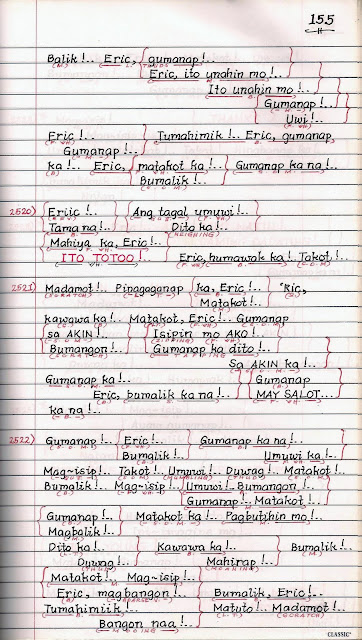 155
Balik !.. Eric, gumanap !..
Eric, ito unahin mo !..
Ito unahin mo !..
Gumanap !..
Uwi !..
Eric !.. Tumahimik !.. Eric, gumanap
Gumanap !..
ka !.. Eric, matakot ka !.. Gumanap ka na !..
Bumalik !..
2520) Eriic !.. Ang tagal umuwi !..
Tama na !.. Dito ka !..
Mahiya ka, Eric !..
ITO TOTOO !.. Eric, humawak ka !.. Takot !..
2521) Madamot !.. Pinagaganap ka, Eric !.. 'Ric,
Matakot !..
kawawa ka !.. Matakot, Eric !.. Gumanap
sa AKIN !.. Isipin mo AKO !..
Bumangon !.. Gumanap ka dito !..
Sa AKIN ka !..
Gumanap ka !.. Gumanap
Eric, bumalik ka na !.. MAY SALOT...
ka na !..
2522) Gumanap !.. Eric !.. Gumanap ka na !..
Bumalik !.. Umuwi ka !..
Mag-isip !.. Takot !.. Umuwi !.. Duwag !.. Matakot !..
Bumalik !.. Mag-isip !.. Umuwi !.. Bumangon !..
Gumanap !.. Matakot !..
Gumanap !.. Matakot ka !.. Pagbutihin mo !..
Magbalik !..
Dito ka !.. Kawawa ka !.. Bumalik !..
Duwag !.. Mahirap !..
Matakot !.. Mag-isip !..
Eric, magbangon !.. Bumalik, Eric !..
Tumahimiik !.. Matuto !.. Madamot !..
Bangon naa !..